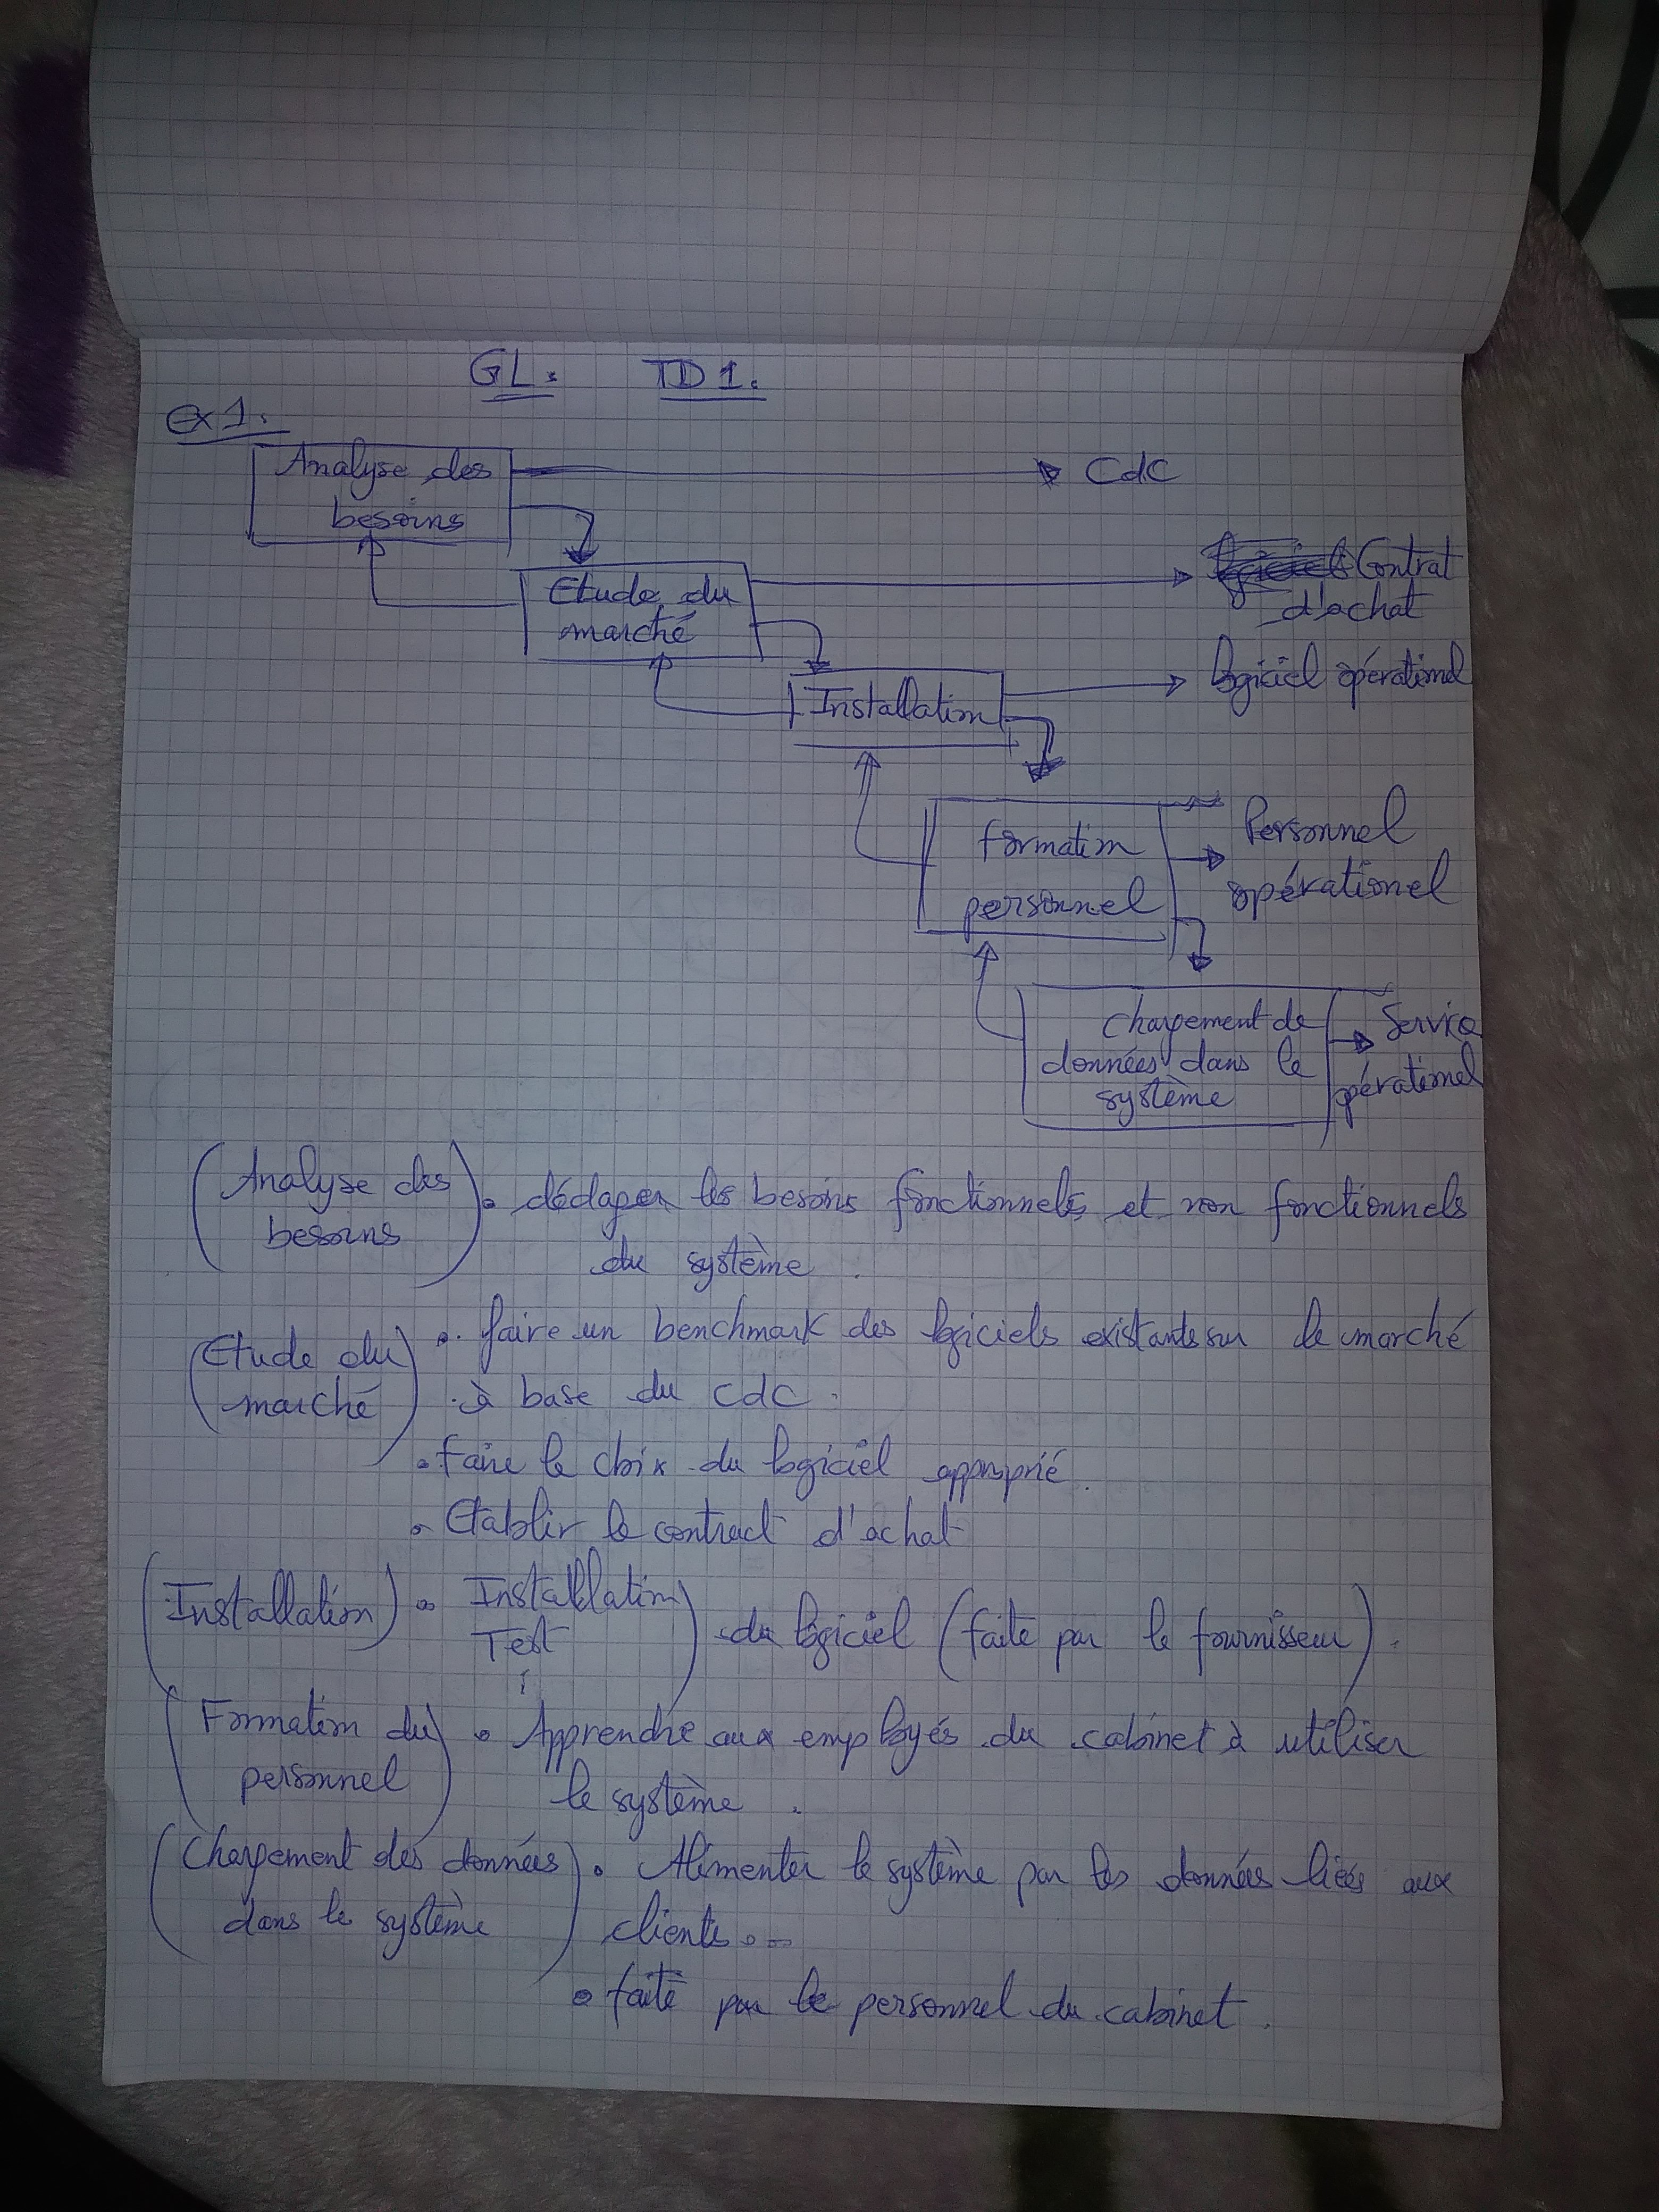 GL: TD1.
ex1.
Analyse des
besoins
CdC
Etude du
marché
Contrat
d'achat
Installation
logiciel opérationnel
formation
personnel
Personnel
opérationel
chargement de
données dans le
système
Service
opérationnel
(Analyse des
besoins)
• dédager les besoins fonctionnels et non fonctionnels
du système.
(Etude du
marché)
• faire un benchmark des logiciels existants sur le marché
à base du CdC.
• faire le choix du logiciel approprié.
• Etablir le contract d'achat
(Installation) • Installation
Test
du logiciel (faite par le fournisseur).
(Formation du
personnel)
• Apprendre aux employés du cabinet à utiliser
le système.
(Chargement des données
dans le système)
• Alimenter le système par les données liées aux
clients...
• faite par le personnel du cabinet.